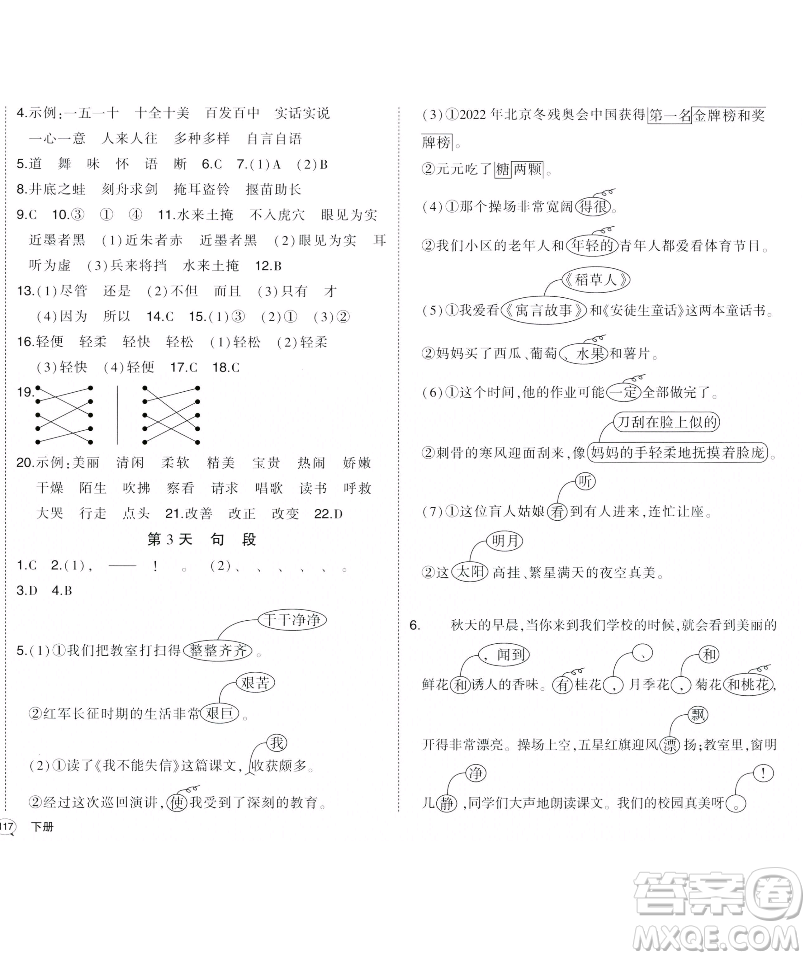 4.示例:一五一十 十全十美 百发百中 实话实说
一心一意 人来人往 多种多样 自言自语
5.道 舞 味 怀 语 断 6.C 7.(1)A (2)B
8.井底之蛙 刻舟求剑 掩耳盗铃 揠苗助长
9.C 10.③ ① ④ 11.水来土掩 不入虎穴 眼见为实
近墨者黑 (1)近朱者赤 近墨者黑 (2)眼见为实 耳
听为虚 (3)兵来将挡 水来土掩 12.B
13.(1)尽管 还是 (2)不但 而且 (3)只有 才
(4)因为 所以 14.C 15.(1)③ (2)① (3)②
16.轻便 轻柔 轻快 轻松 (1)轻松 (2)轻柔
(3)轻快 (4)轻便 17.C 18.C
19.
20.示例:美丽 清闲 柔软 精美 宝贵 热闹 娇嫩
干燥 陌生 吹拂 察看 请求 唱歌 读书 呼救
大哭 行走 点头 21.改善 改正 改变 22.D
第3天 句 段
1.C 2.(1), —— ! 。 (2)、 、 、 、 。
3.D 4.B
干干净净
5.(1)①我们把教室打扫得整整齐齐。
艰苦
②红军长征时期的生活非常艰巨。
我
(2)①读了《我不能失信》这篇课文,收获颇多。
②经过这次巡回演讲,使我受到了深刻的教育。
117 下册
(3)①2022年北京冬残奥会中国获得第一名金牌榜和奖
牌榜。
②元元吃了糖两颗。
(4)①那个操场非常宽阔得很。
②我们小区的老年人和年轻的青年人都爱看体育节目。
《稻草人》
(5)①我爱看《寓言故事》和《安徒生童话》这两本童话书。
②妈妈买了西瓜、葡萄、水果和薯片。
(6)①这个时间,他的作业可能一定全部做完了。
刀刮在脸上似的
②刺骨的寒风迎面刮来,像妈妈的手轻柔地抚摸着脸庞。
听
(7)①这位盲人姑娘看到有人进来,连忙让座。
明月
②这太阳高挂、繁星满天的夜空真美。
6. 秋天的早晨,当你来到我们学校的时候,就会看到美丽的
,闻到 、 和
鲜花和诱人的香味。有桂花,月季花,菊花和桃花,
飘
开得非常漂亮。操场上空,五星红旗迎风漂扬;教室里,窗明
净 !
几静,同学们大声地朗读课文。我们的校园真美呀。
答案卷
MXQE.COM